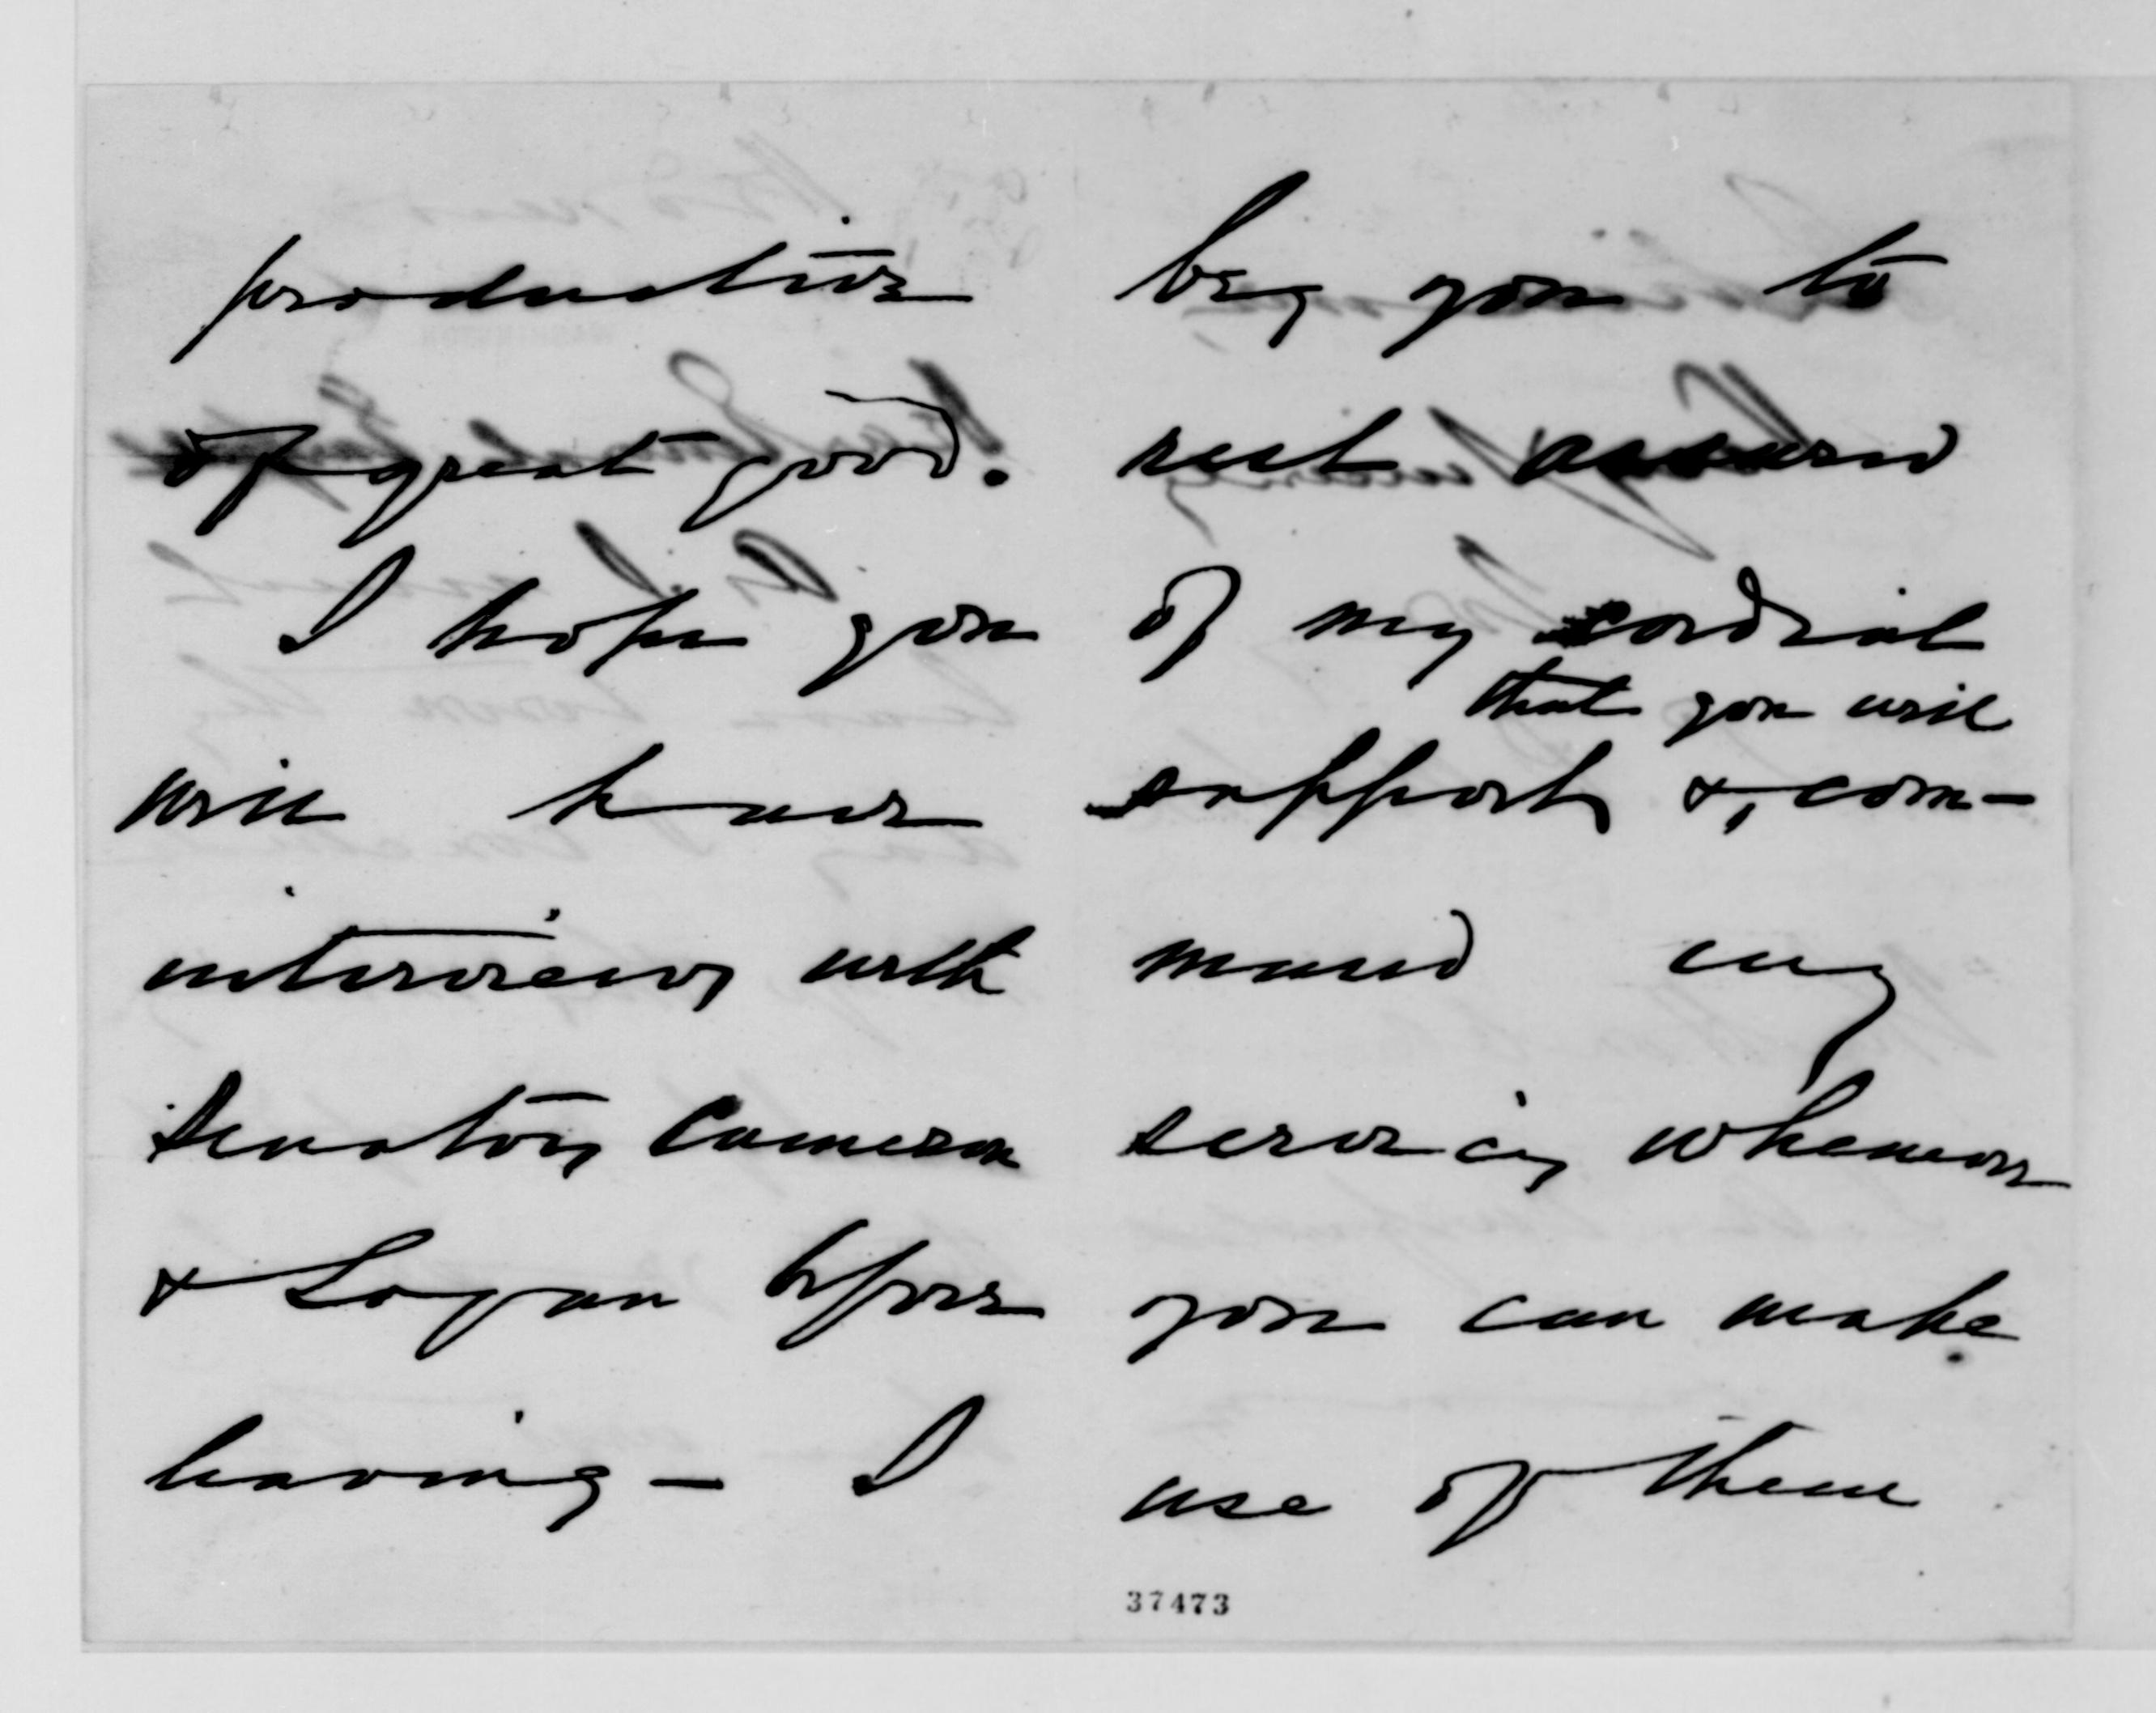 productive
of great good.
I hope you
will have
interviews with
Senators Cameron
& Logan before
leaving — I
beg you to
rest assured
of my cordial
that you will
support &, com-
mand my
services whenever
you can make
use of them
37473